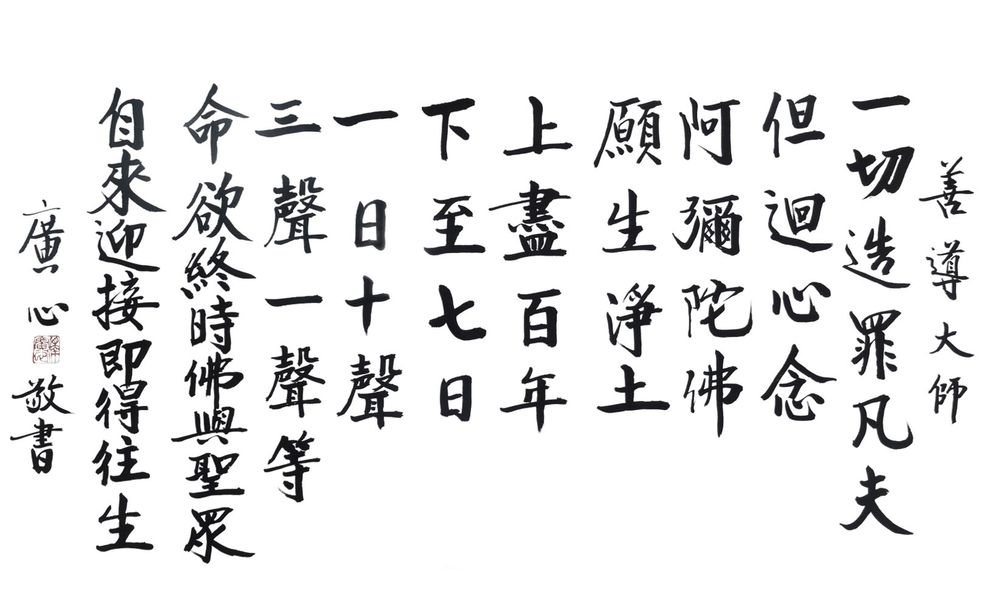 善導大師
一切造罪凡夫
但迴心念
阿彌陀佛
願生淨土
上盡百年
下至七日
一日十聲
三聲一聲等
命欲終時佛與聖眾
自來迎接即得往生
廣心敬書